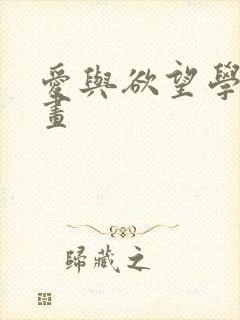 愛與欲望學
畫
歸藏之